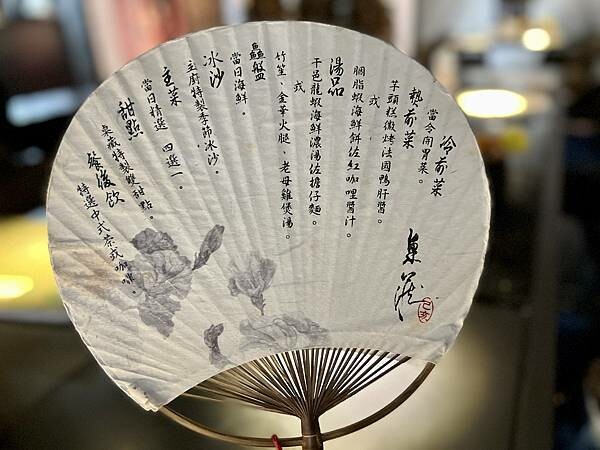 冷前菜
當令開胃菜。
熱前菜
芋頭糕微烤法國鴨肝醬。
或
胭脂蝦海鮮餅佐紅咖哩醬汁。
湯品
干邑龍蝦海鮮濃湯佐擔仔麵。
或
竹笙、金華火腿、老母雞煲湯。
鱻盤
當日海鮮。
冰沙
主廚特製季節冰沙。
主菜
當日精選 四選一。
甜點
巢藏特製雙甜點。
餐後飲
特選中式茶或咖啡。
巢藏
己亥